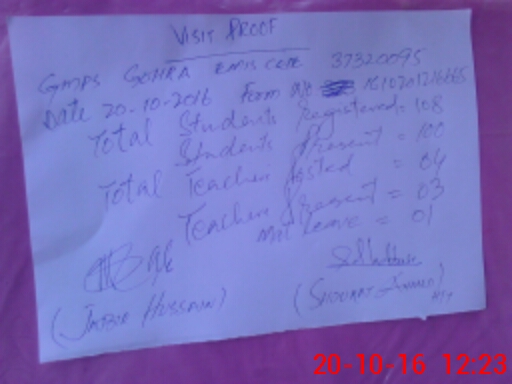 VISIT PROOF
GMPS SOHRA EMIS CODE 37320095
Date 20-10-2016 Form No 
Total Students Registered = 108
Students Present = 100
Total Teacher Posted = 04
Teacher Present = 03
Mat Leave = 01
(JAOBIR HUSSAIN) (SHOUKAT AHMED)
20-10-16 12:23